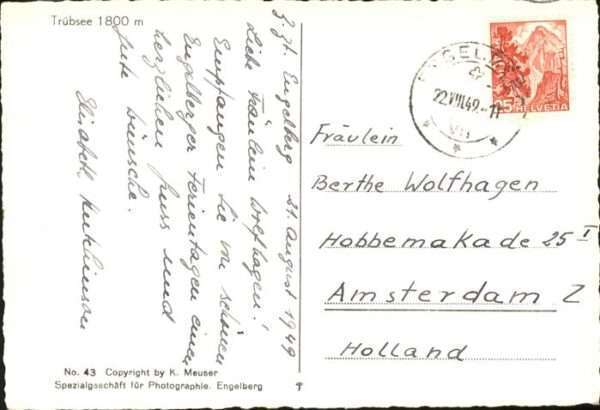 Trübsee 1800 m
Z. Zt. Engelberg 21. August 1949
Liebe Fräulein Wolfhagen!
Empfangen Sie von schönen
Engelberger Ferientagen einen
herzlichen Gruss und
gute Wünsche.
Elisabeth
ENGELBERG
22.VIII.49.-11
25 HELVETIA
Fräulein
Berthe Wolfhagen
Hobbemakade 25 I
Amsterdam Z
Holland
No. 43 Copyright by K. Meuser
Spezialgschäft für Photographie. Engelberg